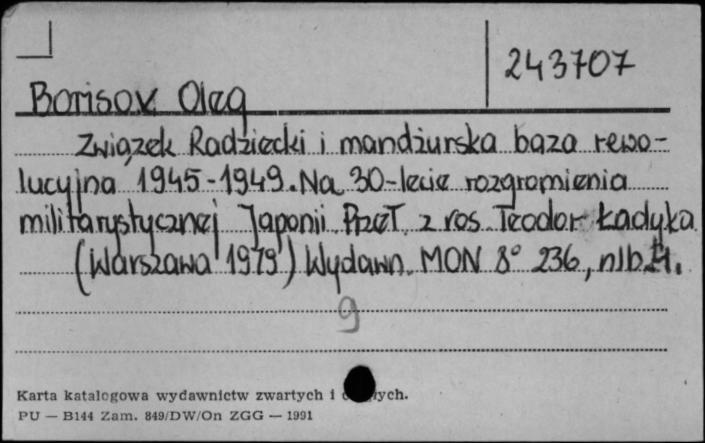 243707
Borisov Oleg
Związek Radziecki i mandżurska baza rewo-
lucyjna 1945-1949. Na 30-lecie rozgromienia
militarystycznej Japonii. Przeł. z ros. Teodor Ładyka
(Warszawa 1979) Wydawn. MON 8° 236, nlb.
9
Karta katalogowa wydawnictw zwartych i
PU — B144 Zam. 849/DW/On ZGG — 1991